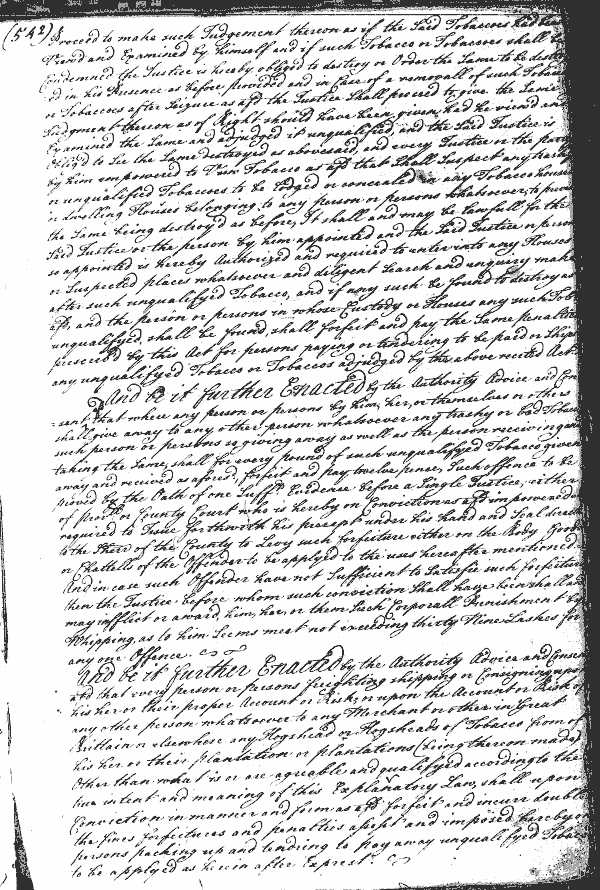 (542)
Proceed to make such Judgement thereon as if the Said Tobaccoes had been
Viewed and Examined by himself and if such Tobacco or Tobaccoes shall be
Condemned the Justice is hereby obliged to destroy or Order the Same to be destroy
ed in his Presence as before provided and in Case of a removall of such Tobacco
or Tobaccoes after Seizure as afd the Justice Shall proceed to give the Same
Judgment thereon as of Right should have been given had he viewed and
Examined the Same and adjudged it unqualifyed, and the Said Justice is
Obliged to See the Same destroyed as abovesaid, and every Justice or the person
by him empowered to View Tobacco as afd that Shall Suspect any trashy
or unqualifyed Tobaccoes to be lodged or concealed in any Tobacco house
or dwelling Houses belonging to any person or persons whatsoever, to procure
the Same being destroy'd as before, It shall and may be lawfull for the
Said Justice or the person by him appointed and the Said Justice or person
so appointed is hereby Authorized and required to enter into any Houses
or Suspected places whatsoever and diligent Search and enquiry make
after such unqualifyed Tobacco, and if any such be found to destroy as
afd, and the person or persons in whose Custody or Houses any such Tob
unqualifyed, shall be found, shall forfeit and pay the Same penalties
prescribed by this Act for persons paying or tendering to be paid or Shipt
any unqualifyed Tobacco or Tobaccos adjudged by the above recited Act
And be it further Enacted by the Authority Advice and Con
-sent that where any person or persons by him, her, or themselves or others
shall give away to any other person whatsoever any trashy or bad Tobacco
such person or persons so giving away as well as the person receiving or
taking the Same, shall for every pound of such unqualifyed Tobacco given
away and received as aforesd, forfeit and pay twelve pence, Such offence to be
proved by the Oath of one Sufft Evidence before a Single Justice, either
of Provll or County Court who is hereby on Conviction as afd impowered
required to Issue forthwith his precept under his hand and Seal directed
to the Sherd of the County to Levy such forfeiture either on the Body Goods
or Chattells of the Offender to be applyed to the uses hereafter mentioned
And in case such Offender have not Sufficient to Satisfie such forfeiture
then the Justice before whom such conviction Shall have been shall and
may inflict or award, him, her, or them Such Corporall Punishment by
Whipping, as to him Seems meet not exceeding thirty Nine Lashes for
any one Offence.
And be it further Enacted by the Authority Advice and Consent
afd that every person or persons freighting shipping or Consigning upon
his her or their proper Account or Risk, or upon the Account or Risk of
any other person whatsoever to any Merchant or other in Great
Brittain or elsewhere any Hogshead or Hogsheads of Tobacco from of
his her or their plantation or plantations (being thereon made)
Other than what is or are agreable and qualifyed according to the
true intent and meaning of this Explanatory Law, shall upon
Conviction in manner and form as afd forfeit and incurr double
the fines forfeitures and penalties assesst and imposed hereby on
persons packing up and tending to pay away unqualifyed Tobacco
to be applyed as herein after Exprest